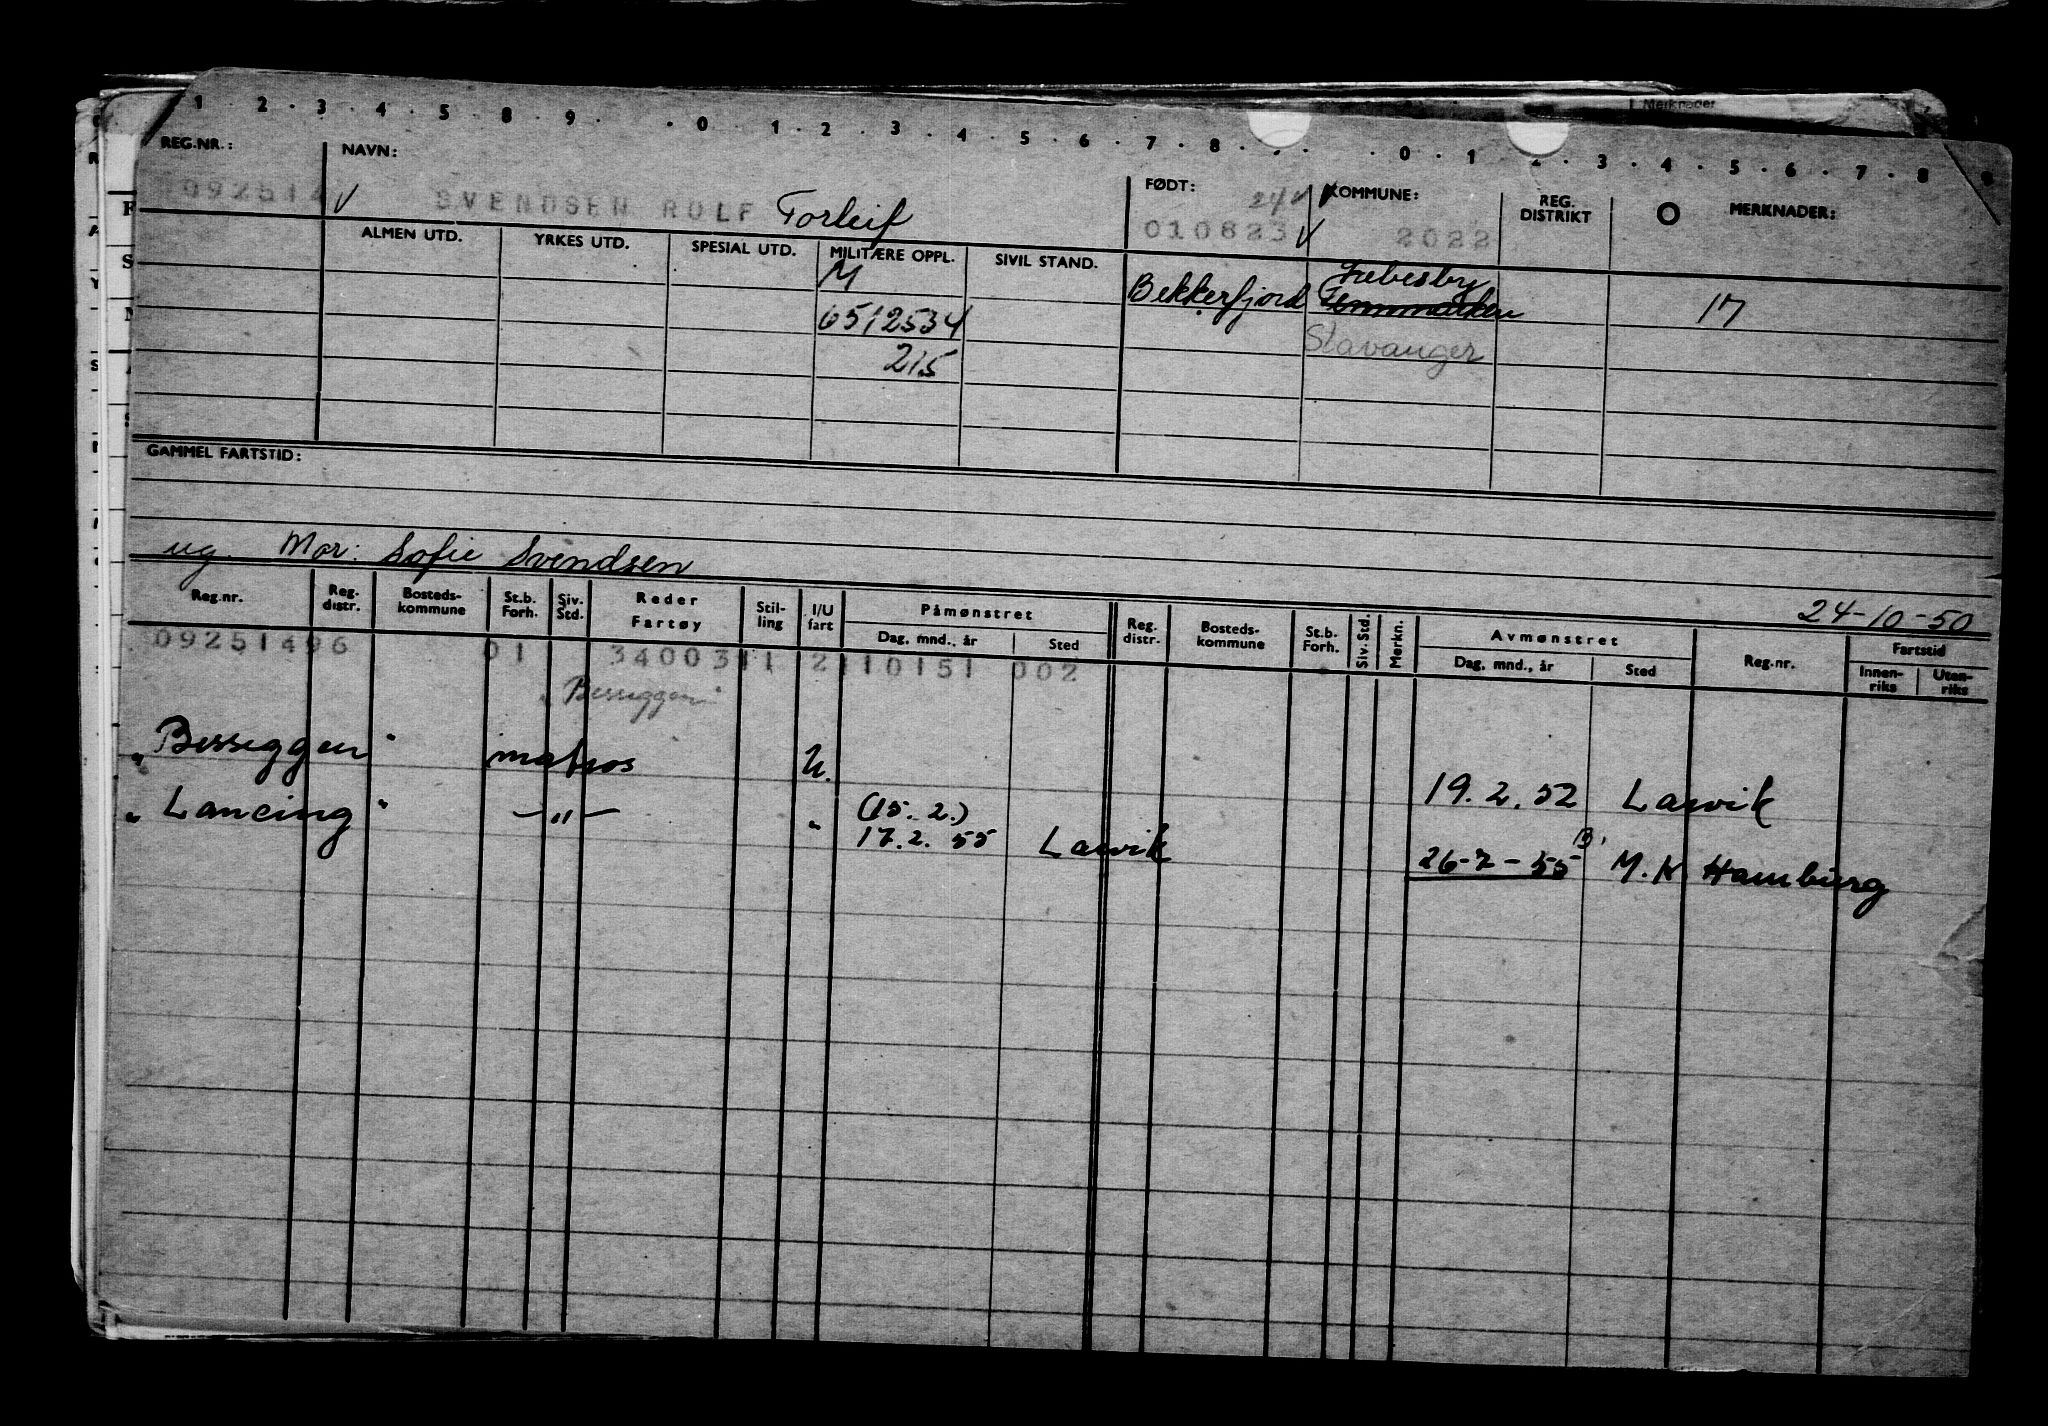 1 . 2 . 3 . 4 . 5 . 8 . 9 . . 0 . 1 . 2 . 3 . 4 . 5 . 6 . 7 . 8 . . 0 . 1 . 2 . 3 . 4 . 5 . 6 . 7 . 8 . 9
Merknader
REG.NR.: NAVN: FØDT: 24 KOMMUNE: REG. DISTRIKT O MERKNADER:
092514 SVENDSEN ROLF Torleif 010623 2022
ALMEN UTD. YRKES UTD. SPESIAL UTD. MILITÆRE OPPL. SIVIL STAND.
M Bekkerfjord Lebesby 17
6512534 Stavanger
215
GAMMEL FARTSTID:
ug. Mor: Sofie Svendsen
24-10-50
Reg.nr. Reg. distr. Bosteds- kommune St.b. Forh. Siv. Std. Reder Fartøy Stil- ling I/U fart Påmønstret Dag, mnd., år Sted Reg. distr. Bosteds- kommune St.b. Forh. Siv. Std. Merkn. Avmønstret Dag, mnd., år Sted Reg.nr. Fartstid Innen- riks Uten- riks
09251496 01 3400311 2110151 002
"Besseggen"
"Besseggen" matros U. 19.2.52 Larvik
"Lancing" —"— " (15.2.)
17.2.55 Larvik 26-7-55 B. M.K. Hamburg